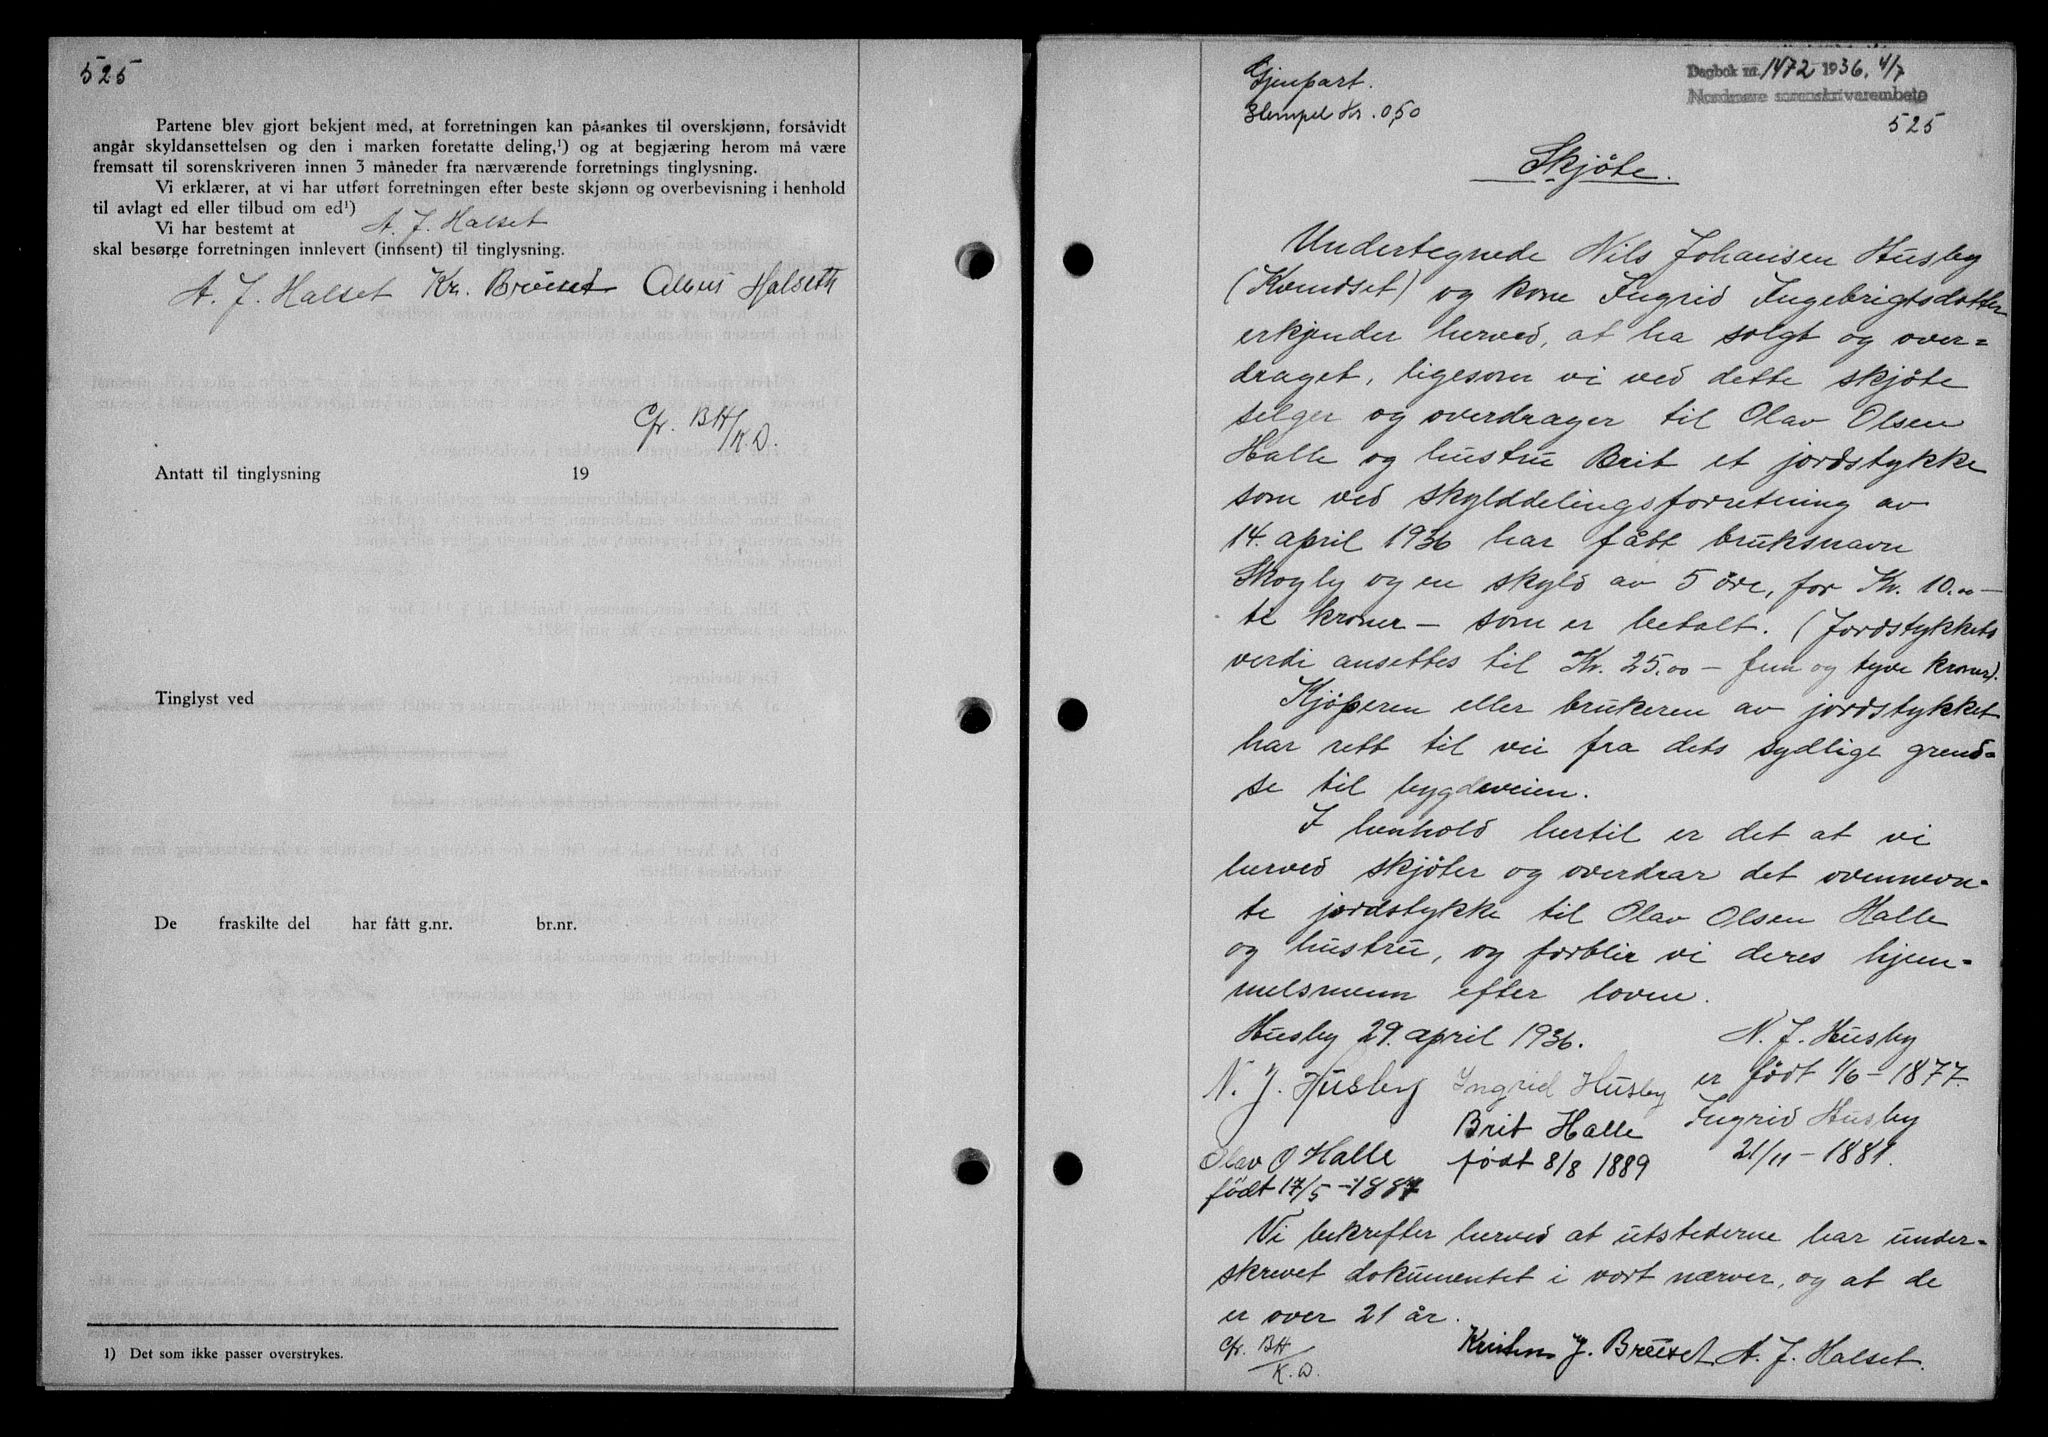 525
Partene blev gjort bekjent med, at forretningen kan på-ankes til overskjønn, forsåvidt
angår skyldansettelsen og den i marken foretatte deling,¹) og at begjæring herom må være
fremsatt til sorenskriveren innen 3 måneder fra nærværende forretnings tinglysning.
Vi erklærer, at vi har utført forretningen efter beste skjønn og overbevisning i henhold
til avlagt ed eller tilbud om ed¹)
Vi har bestemt at A. J. Halset
skal besørge forretningen innlevert (innsent) til tinglysning.
A. J. Halset Kr. Brøiset Halseth
Cfr. BH/K.D.
Antatt til tinglysning 19
Tinglyst ved
De fraskilte del har fått g.nr. br.nr.
1) Det som ikke passer overstrykes.
Gjenpart.
Stempel Kr. 0,50
Dagbok nr. 1472 1936, 4/7
Nordmøre sorenskrivarembete
525
Skjøte.
Undertegnede Nils Johansen Husby
(Kvendset) og kone Ingrid Ingebrigtsdotter
erkjender herved, at ha solgt og over=
draget, ligesom vi ved dette skjøte
selger og overdrager til Olav Olsen
Halle og hustru Brit et jordstykke
som ved skylddelingsforretning av
14. april 1936 har fått bruksnavn
Skogly og en skyld av 5 øre, for Kr. 10.00 –
ti kroner – som er betalt. (Jordstykkets
verdi ansettes til Kr. 25.00 – fem og tyve kroner).
Kjøperen eller brukeren av jordstykket
har rett til vei fra dets sydlige grend=
se til bygdeveien.
I henhold hertil er det at vi
herved skjøter og overdrar det ovennevn=
te jordstykke til Olav Olsen Halle
og hustru, og forblir vi deres hjem=
melsmenn efter loven.
Husby 29. april 1936. N. J. Husby
N. J. Husby Ingrid Husby er født 1/6 – 1877.
Brit Halle Ingrid Husby
Olav O Halle født 8/8 1889 21/11 – 1881.
født 17/5 – 1887
Vi bekrefter herved at utstederne har under=
skrevet dokumentet i vort nærver, og at de
er over 21 år.
Cfr. BH/K.D. J. Brøiset A. J. Halset.